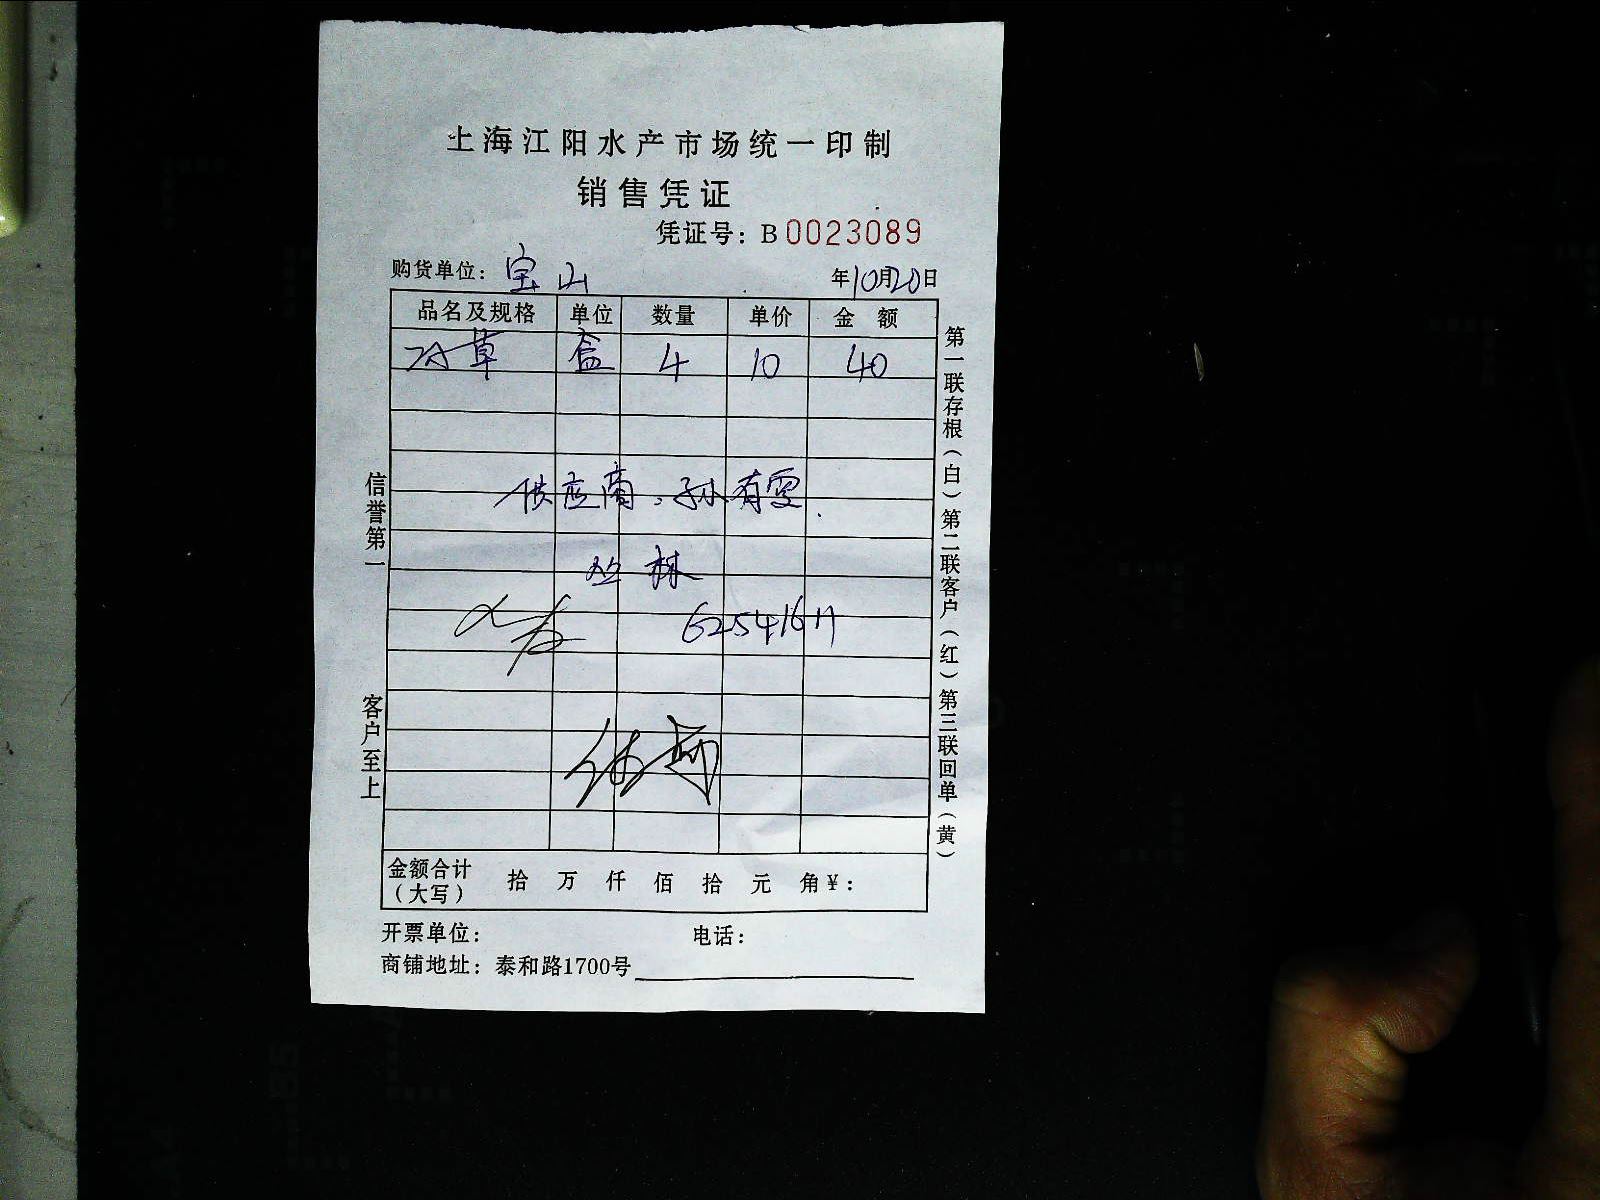 上海江阳水产市场统一印制
销售凭证
凭证号：B0023089
购货单位：宝山 年10月20日
品名及规格 单位 数量 单价 金 额
草 盒 4 10 40
供应商：孙有雯.
丛林
625416
金额合计（大写） 拾 万 仟 佰 拾 元 角¥：
开票单位： 电话：
商铺地址：泰和路1700号
信誉第一 客户至上
第一联存根（白）第二联客户（红）第三联回单（黄）